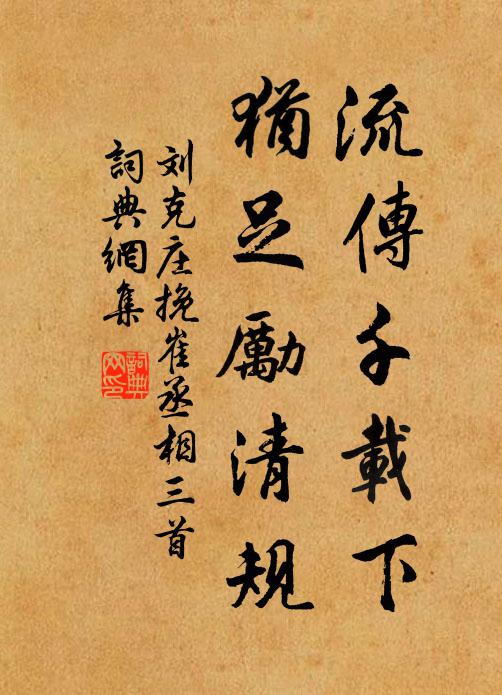 流傳千載下
猶足勵清規
刘克庄挽崔丞相三首
詞典網集
詞典網印